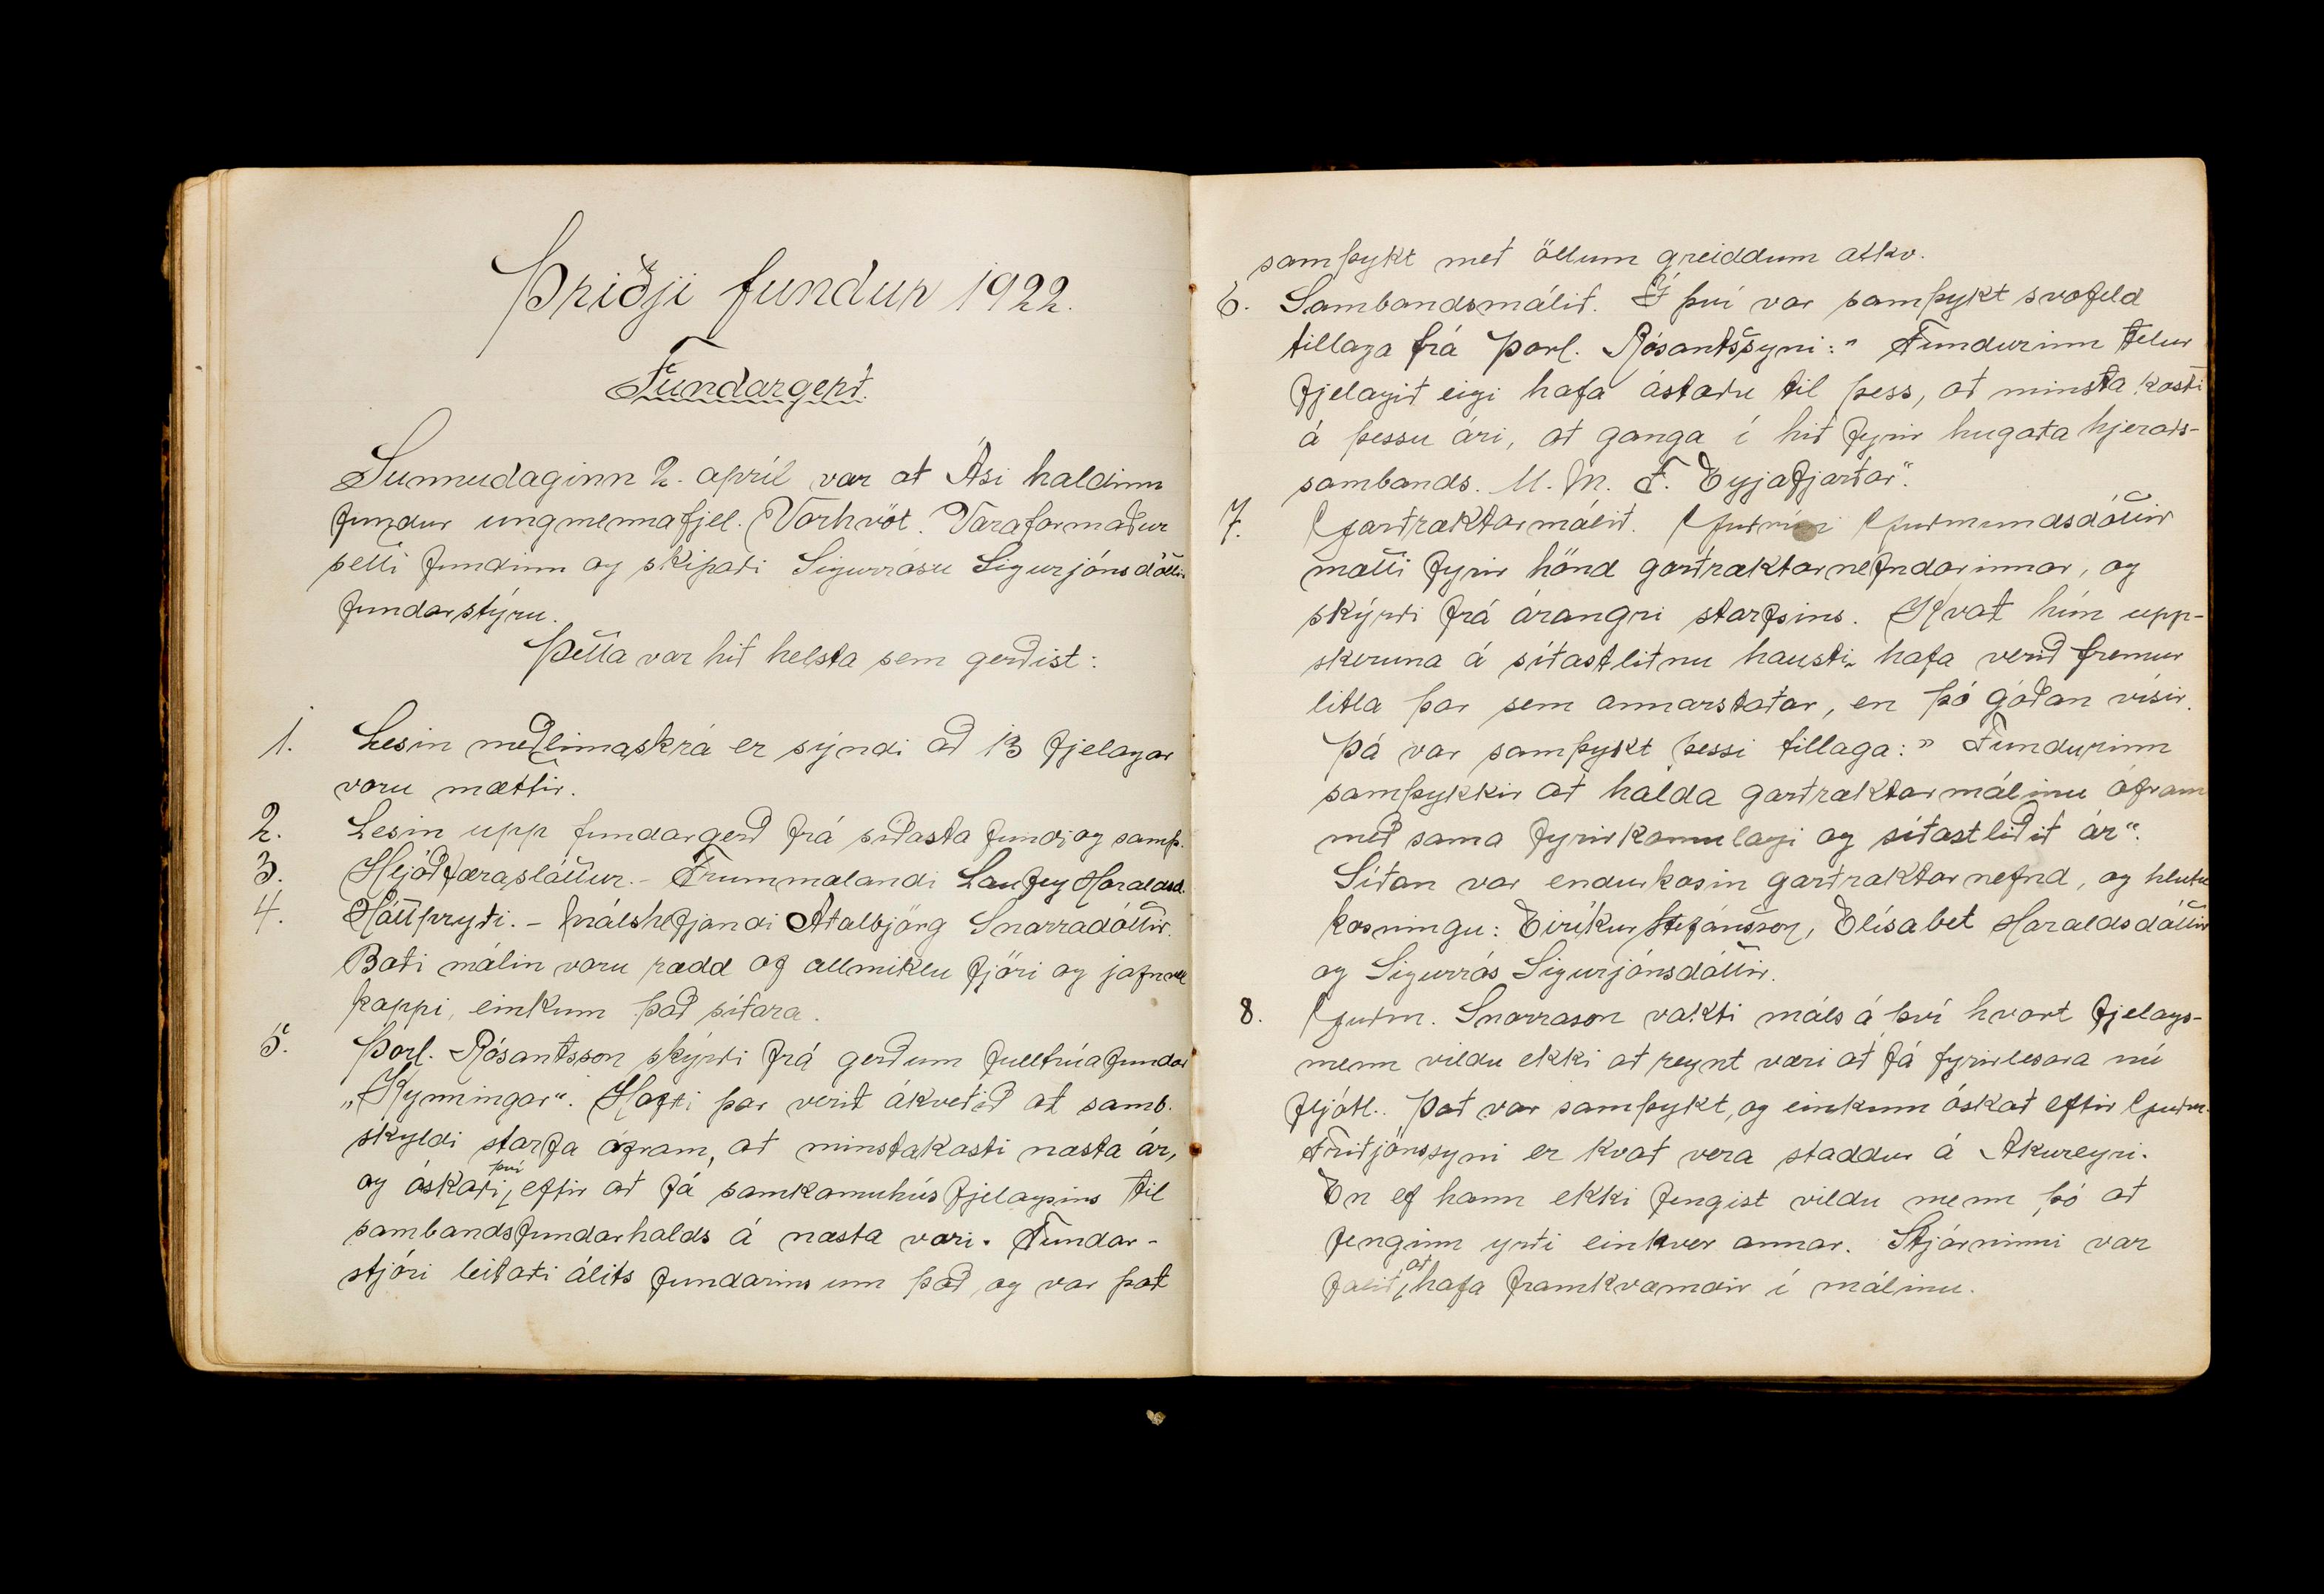 Þriðji fundur 1922.
Fundargerð.
Sunnudaginn 2. apríl var að Ási haldinn
fundur ungmennafjel. Vorhvöt. Varaformaður
setti fundinn og skipaði Sigurrósu Sigurjónsdóttir
fundarstýru.
Þetta var hið helsta sem gerðist:
1. Lesin meðlimaskrá er sýndi að 13 fjelagar
voru mættir.
2. Lesin upp fundargerð frá síðasta fundi og samþ.
3. Hljóðfærasláttur. - Frummælandi Laufey Haraldsd.
4. Háttprýði. - Málshefjandi Aðalbjörg Snorradóttir.
Bæði málin voru rædd af allmiklu fjöri og jafnvel
kappi, einkum það síðara.
5. Þorl. Rósantsson skýrði frá gerðum fulltrúafundar
„Kynningar“. Hafði þar verið ákveðið að samb.
skyldi starfa áfram, að minstakosti næsta ár,
og óskaði því eftir að fá samkomuhús fjelagsins til
sambandsfundarhalds á næsta vori. Fundar-
stjóri leitaði álits fundarins um það, og var það
samþykt með öllum greiddum atkv.
6. Sambandsmálið. Í því var samþykt svofeld
tillaga frá Þorl. Rósantssyni: " Fundurinn telur
fjelagið eigi hafa ástæðu til þess, að minsta kosti
á þessu ári, að ganga í hið fyrir hugaða hjeraðs-
sambands. U. M. F. Eyjafjarðar".
7. Garðræktarmálið. Guðrún Guðmundsdóttir
mætti fyrir hönd garðræktarnefndarinnar, og
skýrði frá árangri starfsins. Kvað hún upp-
skeruna á síðastliðnu hausti hafa verið fremur
litla þar sem annarstaðar, en þó góðan vísir.
Þá var samþykt þessi tillaga: " Fundurinn
samþykkir að halda garðræktarmálinu áfram
með sama fyrirkomulagi og síðastliðið ár“.
Síðan var endurkosin garðræktarnefnd, og hlutu
kosningu: Eiríkur Stefánsson, Elísabet Haraldsdóttir
og Sigurrós Sigurjónsdóttir.
8. Guðm. Snorrason vakti máls á því hvort fjelags-
menn vildu ekki að reynt væri að fá fyrirlesara nú
fljótl. Það var samþykt, og einkum óskað eftir Guðm.
Friðjónssyni er kvað vera staddur á Akureyri.
En ef hann ekki fengist vildu menn þó að
fenginn yrði einhver annar. Stjórninni var
falið að hafa framkvæmdir í málinu.